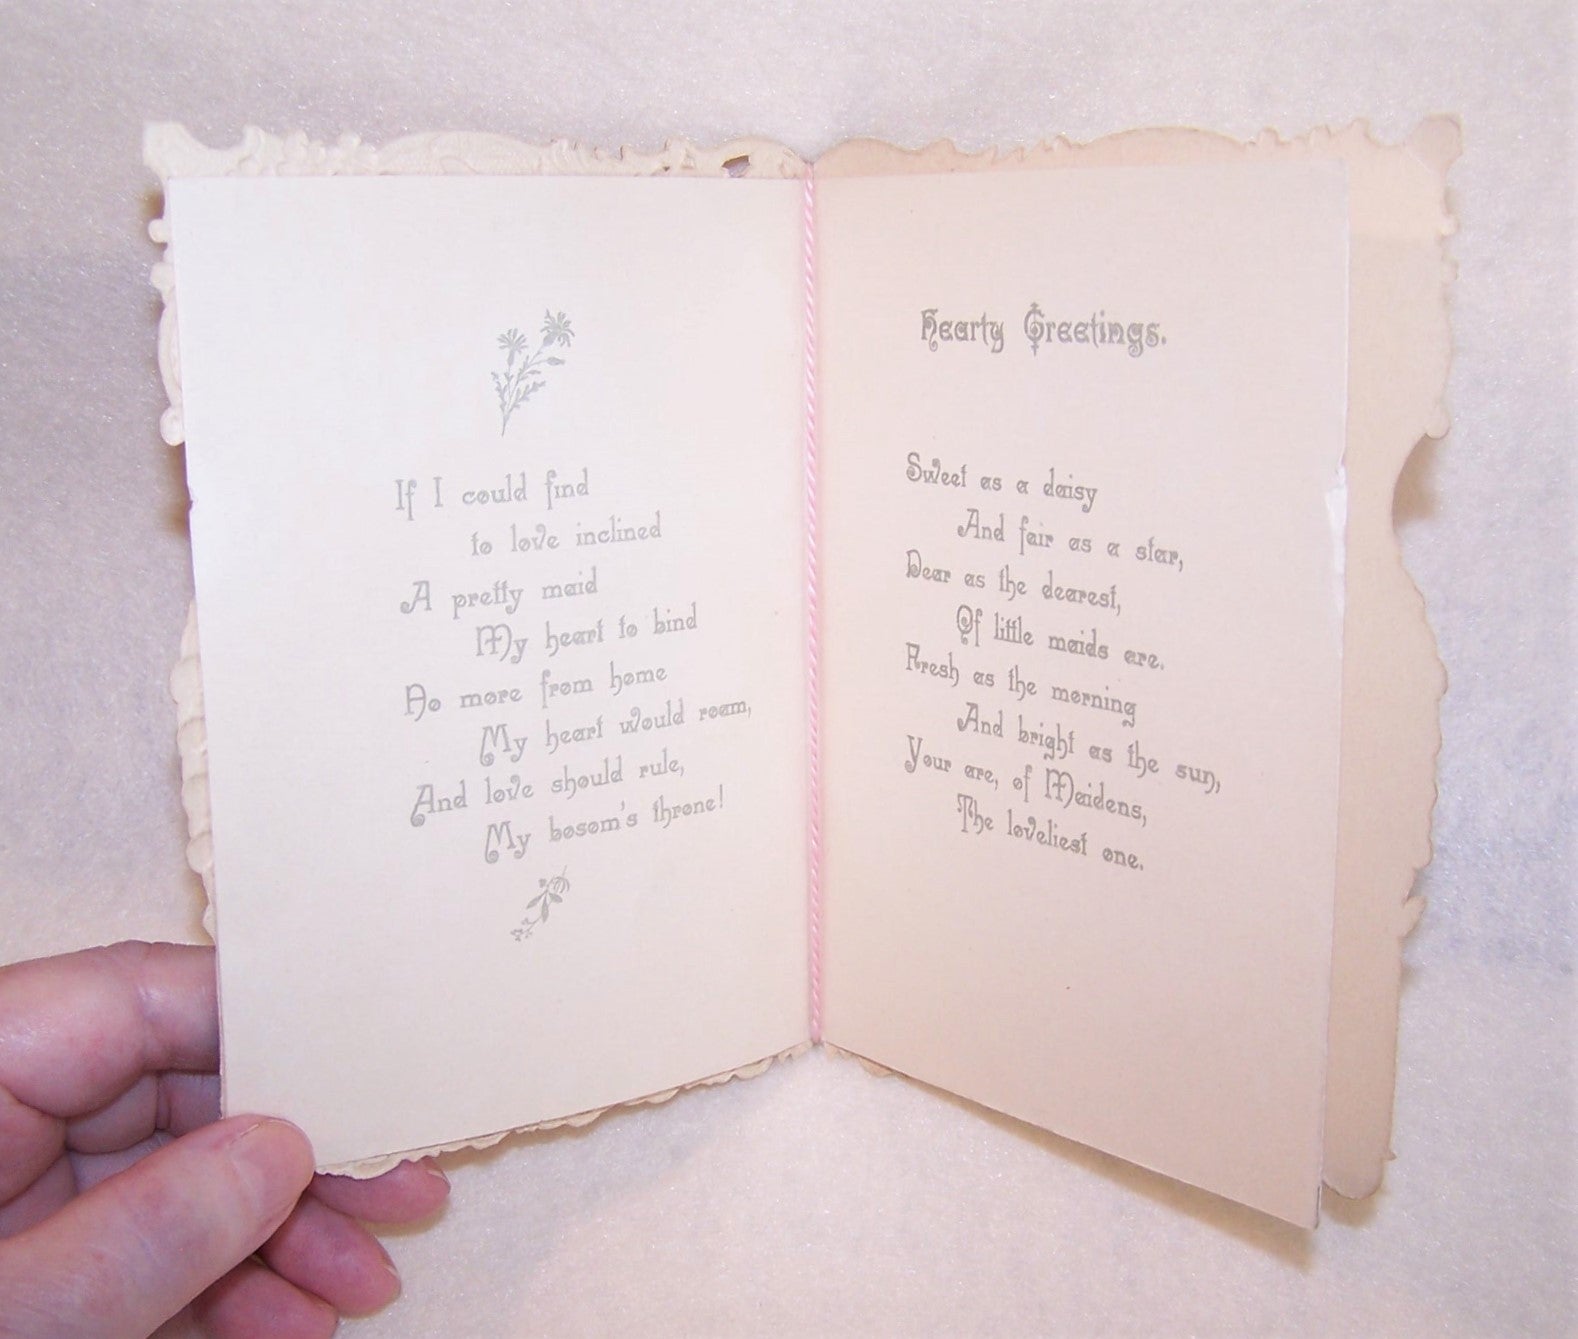 If I could find
to love inclined
A pretty maid
My heart to bind
No more from home
My heart would roam,
And love should rule,
My bosom's throne!
Hearty Greetings.
Sweet as a daisy
And fair as a star,
Dear as the dearest,
Of little maids are.
Fresh as the morning
And bright as the sun,
Your are, of Maidens,
The loveliest one.